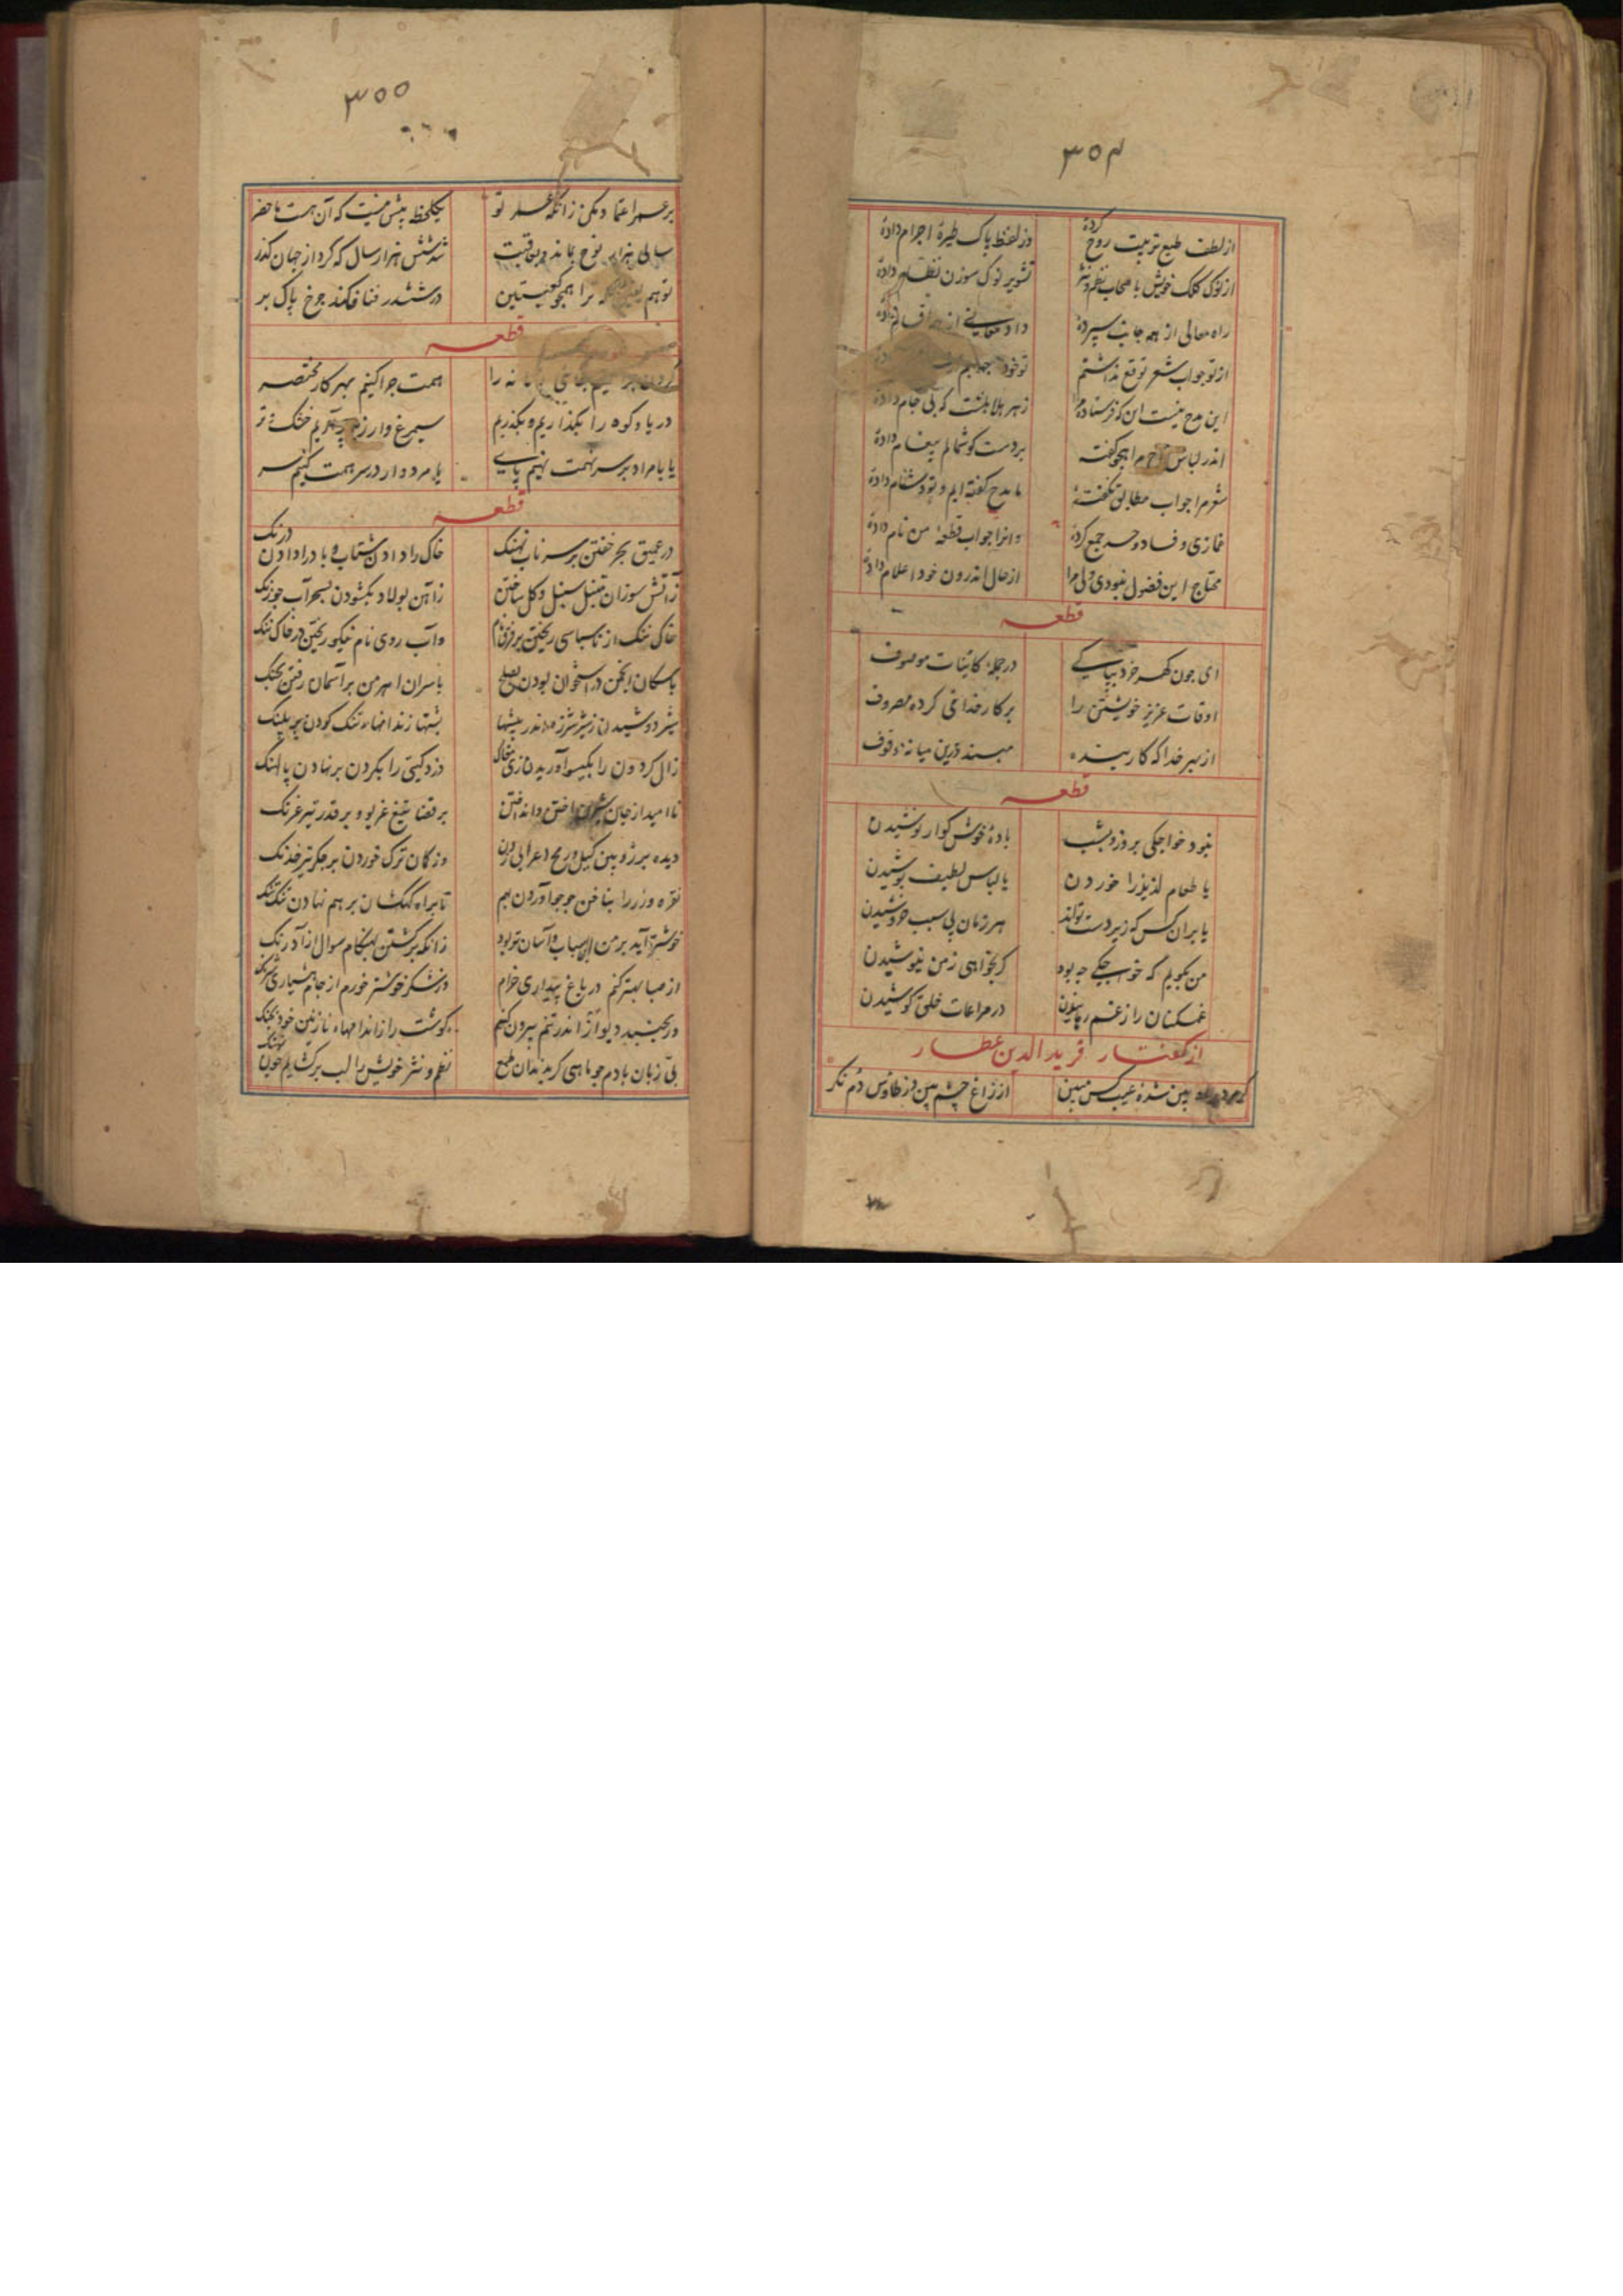 ۳۵۴
از لطف طبع تربیت روح کردهٔ وز لفظ پاک طیرهٔ اجرام دادهٔ
از نوک کلک خویش باصحاب نظم و نثر تشویر نوک سوزن نظام دادهٔ
راه معالی از همه جانب سپردهٔ داد معانی از
از تو جواب شعر توقع نداشتم تو خود جوابم
این مدح نیست این که فرستادهٔ مرا زهر هلاهلست که بی جام دادهٔ
اندر لباس مدح مرا هجو گفته بر دست گوشمالم پیغام دادهٔ
شعر مرا جواب مطابق نگفتهٔ ما مدح گفته ایم و تو دشنام دادهٔ
غمازی و فساد و حسد جمع کردهٔ وانرا جواب قطعهٔ من نام دادهٔ
محتاج این فضول نبودی ولی مرا از حال اندرون خود اعلام دادهٔ
قطعه
ای چون گهر خرد بپاکی در جملهٔ کائنات موصوف
اوقات عزیز خویشتن را بر کار خدای کرده مصروف
از بهر خدا که کار بنده مپسند درین میانه موقوف
قطعه
نبود خواجکی بروز و شب بادهٔ خوش کوار نوشیدن
یا طعام لذیذ را خوردن یا لباس لطیف پوشیدن
یا بران کس که زیر دست تواند هر زمان بی سبب خروشیدن
من بگویم که خواجکی چه بود گر بخواهی ز من نیوشیدن
غمکنان را ز غم رهانیدن در مراعات خلق کوشیدن
از گفتار فرید الدین عطار
بین شده عیب کس مبین از زاغ چشم بین وز طاوس دم نکر
۳۵۵
بر عمر اعتماد مکن زانکه عمر تو یکلحظه بیش نیست که آن هست ماحضر
سالی هزار نوح بماند و بعاقبت شد شش هزار سال که کرد از جهان کذر
تو هم ترا همچو کعبتین در ششدر فنا فکند چرخ پاک بر
قطعه
همت چرا کنیم بهر کار مختصر
دریا و کوه را بکذاریم و بکذریم سیمرغ وار زیر پر آریم خشک و تر
یا با مراد بر سر همت نهیم پای یا مردوار در سر همت کنیم سر
قطعه
در عمیق بحر خفتن بر سر ناب نهنک خاک را دادن شتاب و باد را دادن درنک
ز آتش سوزان سنبل و کل ساختن ز آهن پولاد بکشودن بسحر آب چو زنک
خاک ننک از ناسپاسی ریختن بر فرق نام وآب روی نام نیکو ریختن در خاک ننک
با سکان انجمن در استخوان بودن بصلح با سران اهرمن بر آسمان رفتن بجنک
شیر دوشیدن ز شیر شرزه اندر بیشها بشتها زندانهاء تنک کردن بر پلنک
زال کردون را بکیسو آوریدن زی مغاک دزد کیتی را بکردن بر نهادن پالهنک
ناامید از جان شیرین اختن وانداختن بر قضا تیغ غریو و بر قدر تیر غرنک
دیده بر وز کمان ترک خوردن بر جکر تیر خدنک
نقره و زر را بناخن جو جو آوردن بهم تا براه کهکشان بر هم نهادن تنک تنک
خوشتر آید بر من اسباب و آسان تر بود زانکه برکشتن بهنکام سوال از آذرنک
از صبا بهتر کنم در باغ بیداری خرام وز شکر خوشتر خورم از جام هشیاری شرنک
ور بجنبد دیو آز اندر تنم بیرون کنم کوشت را ز اندامهاء نازنین خود بچنک
بی زبان بادم چو ماهی کر بدندان طمع نظم و نثر خویش را لب بر کشایم چون نهنک